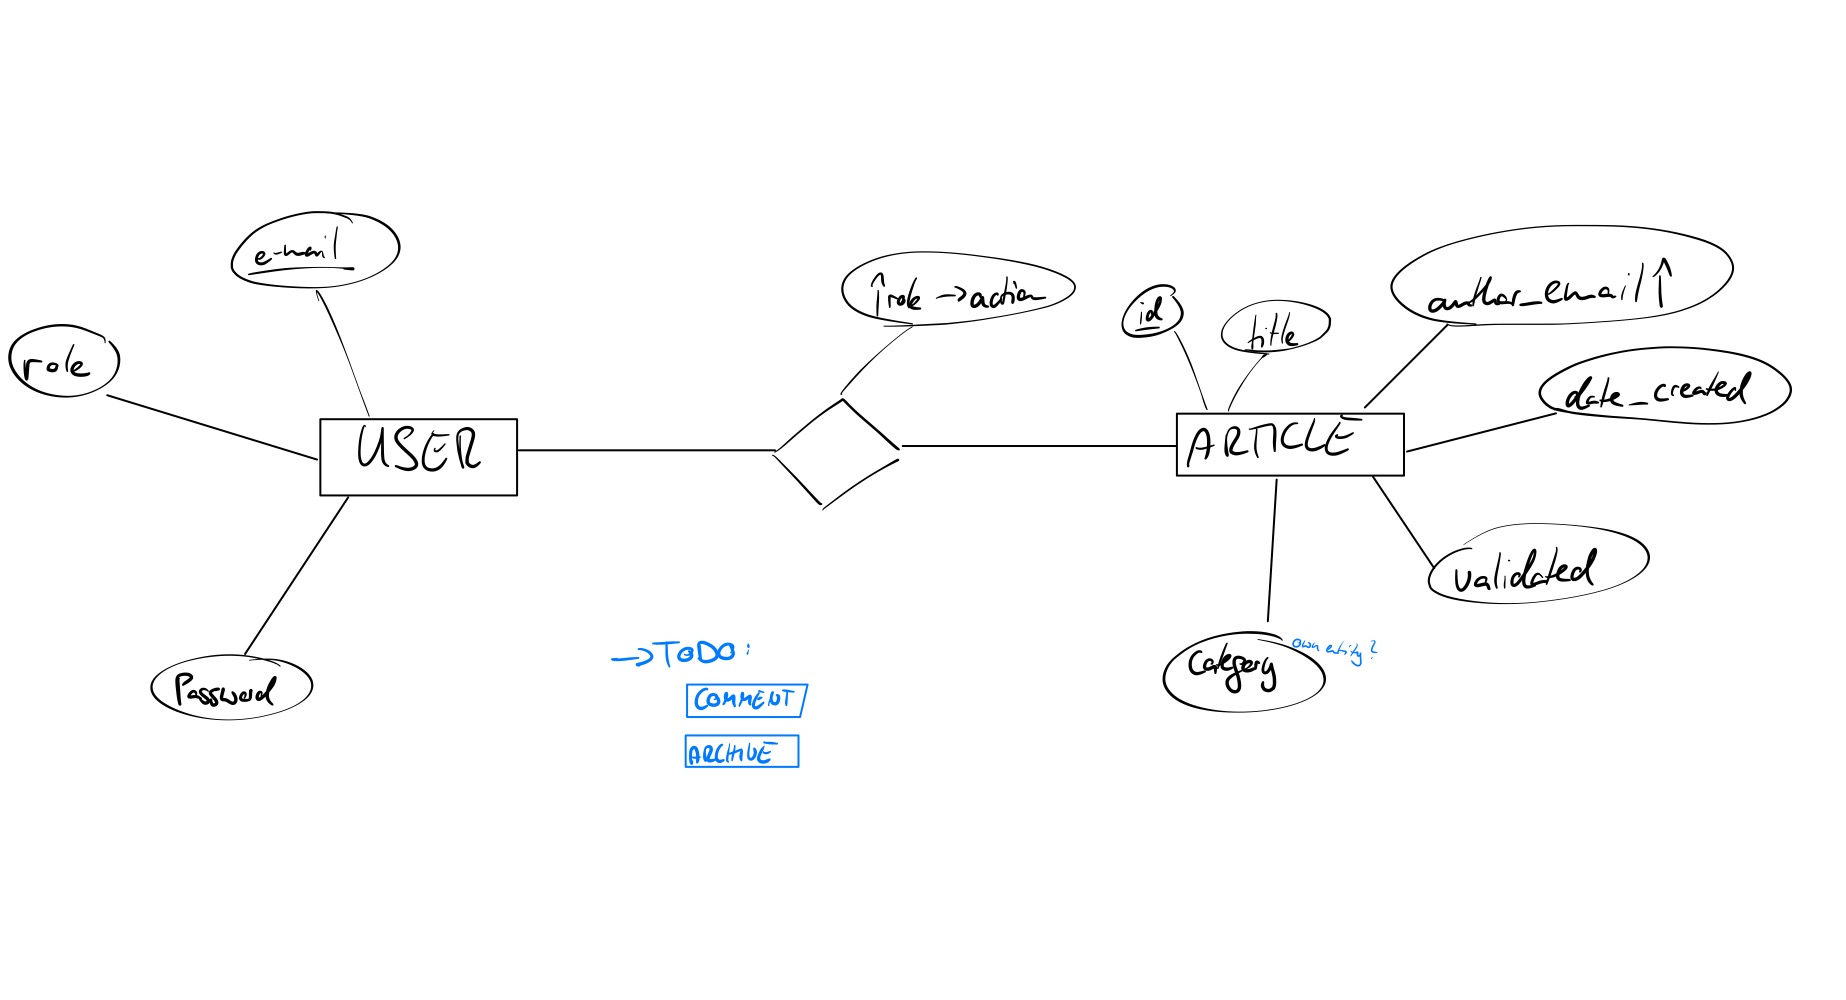 e-mail
role
USER
Password
↑role → action
id
title
author_email↑
date_created
ARTICLE
validated
Category
own entity?
→ TODO:
COMMENT
ARCHIVE